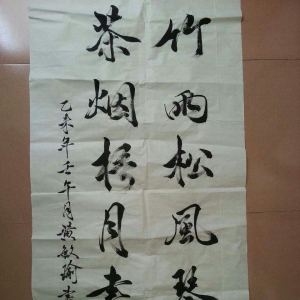 竹雨松風琴
茶烟梧月書
乙未年壬午月黄敏瑜書